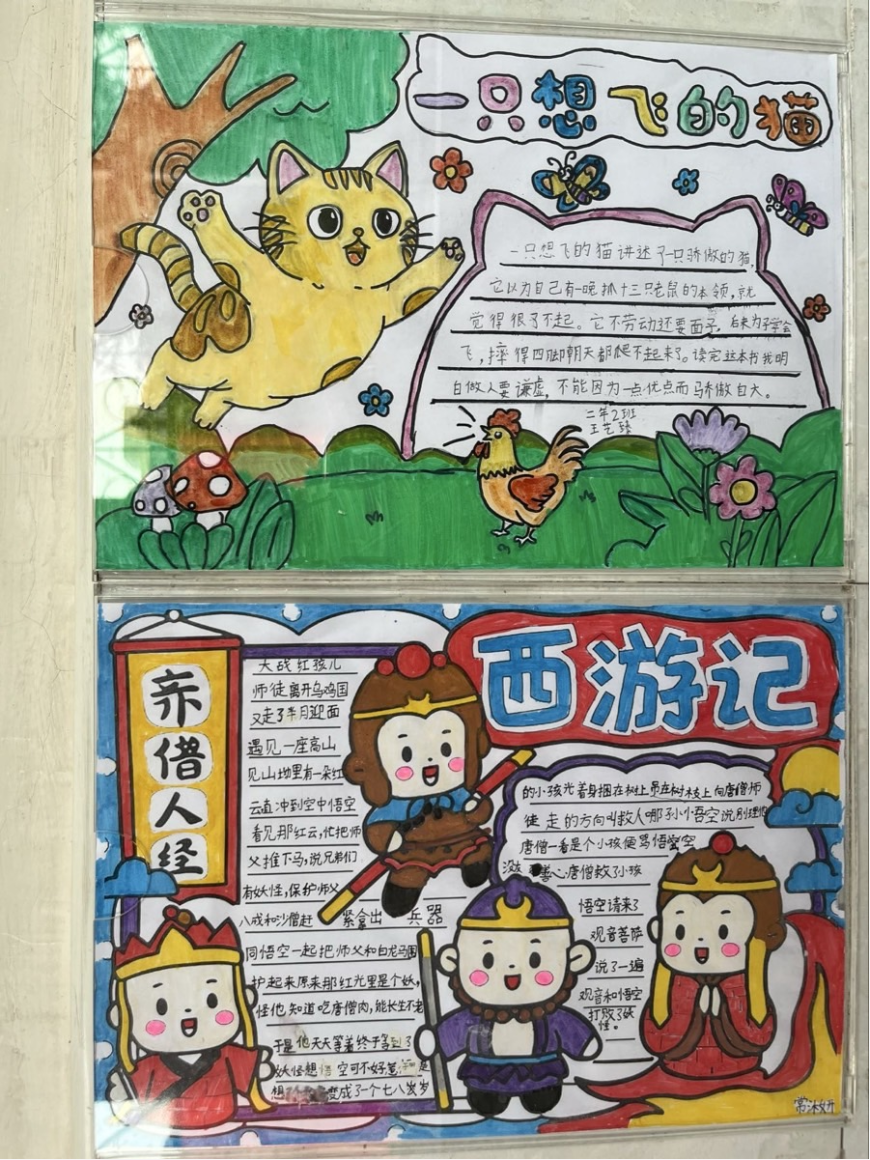 一只想飞的猫
一只想飞的猫讲述了一只骄傲的猫,
它以为自己有一晚抓十三只老鼠的本领,就
觉得很了不起。它不劳动还要面子,后来为了学会
飞,摔得四脚朝天都爬不起来了。读完这本书我明
白做人要谦虚,不能因为一点优点而骄傲自大。
二年2班
王艺臻
西游记
亲借人经
大战红孩儿
师徒离开乌鸡国
又走了半月迎面
遇见一座高山
见山坳里有一朵红
云直冲到空中悟空
看见那红云,忙把师
父推下马,说兄弟们
有妖怪,保护师父
八戒和沙僧赶紧拿出兵器
同悟空一起把师父和白龙马围
护起来原来那红光里是个妖,
怪他知道吃唐僧肉,能长生不老
于是他天天等着终于等到了
妖怪想悟空可不好惹
想变成了一个七八岁
的小孩光着身捆在树上吊在树枝上向唐僧师
徒走的方向叫救人哪孙悟空说别理他
唐僧一看是个小孩便骂悟空
善心唐僧救了小孩
悟空请来了
观音菩萨
说了一遍
观音和悟空
打败了妖
怪。
常沐妍